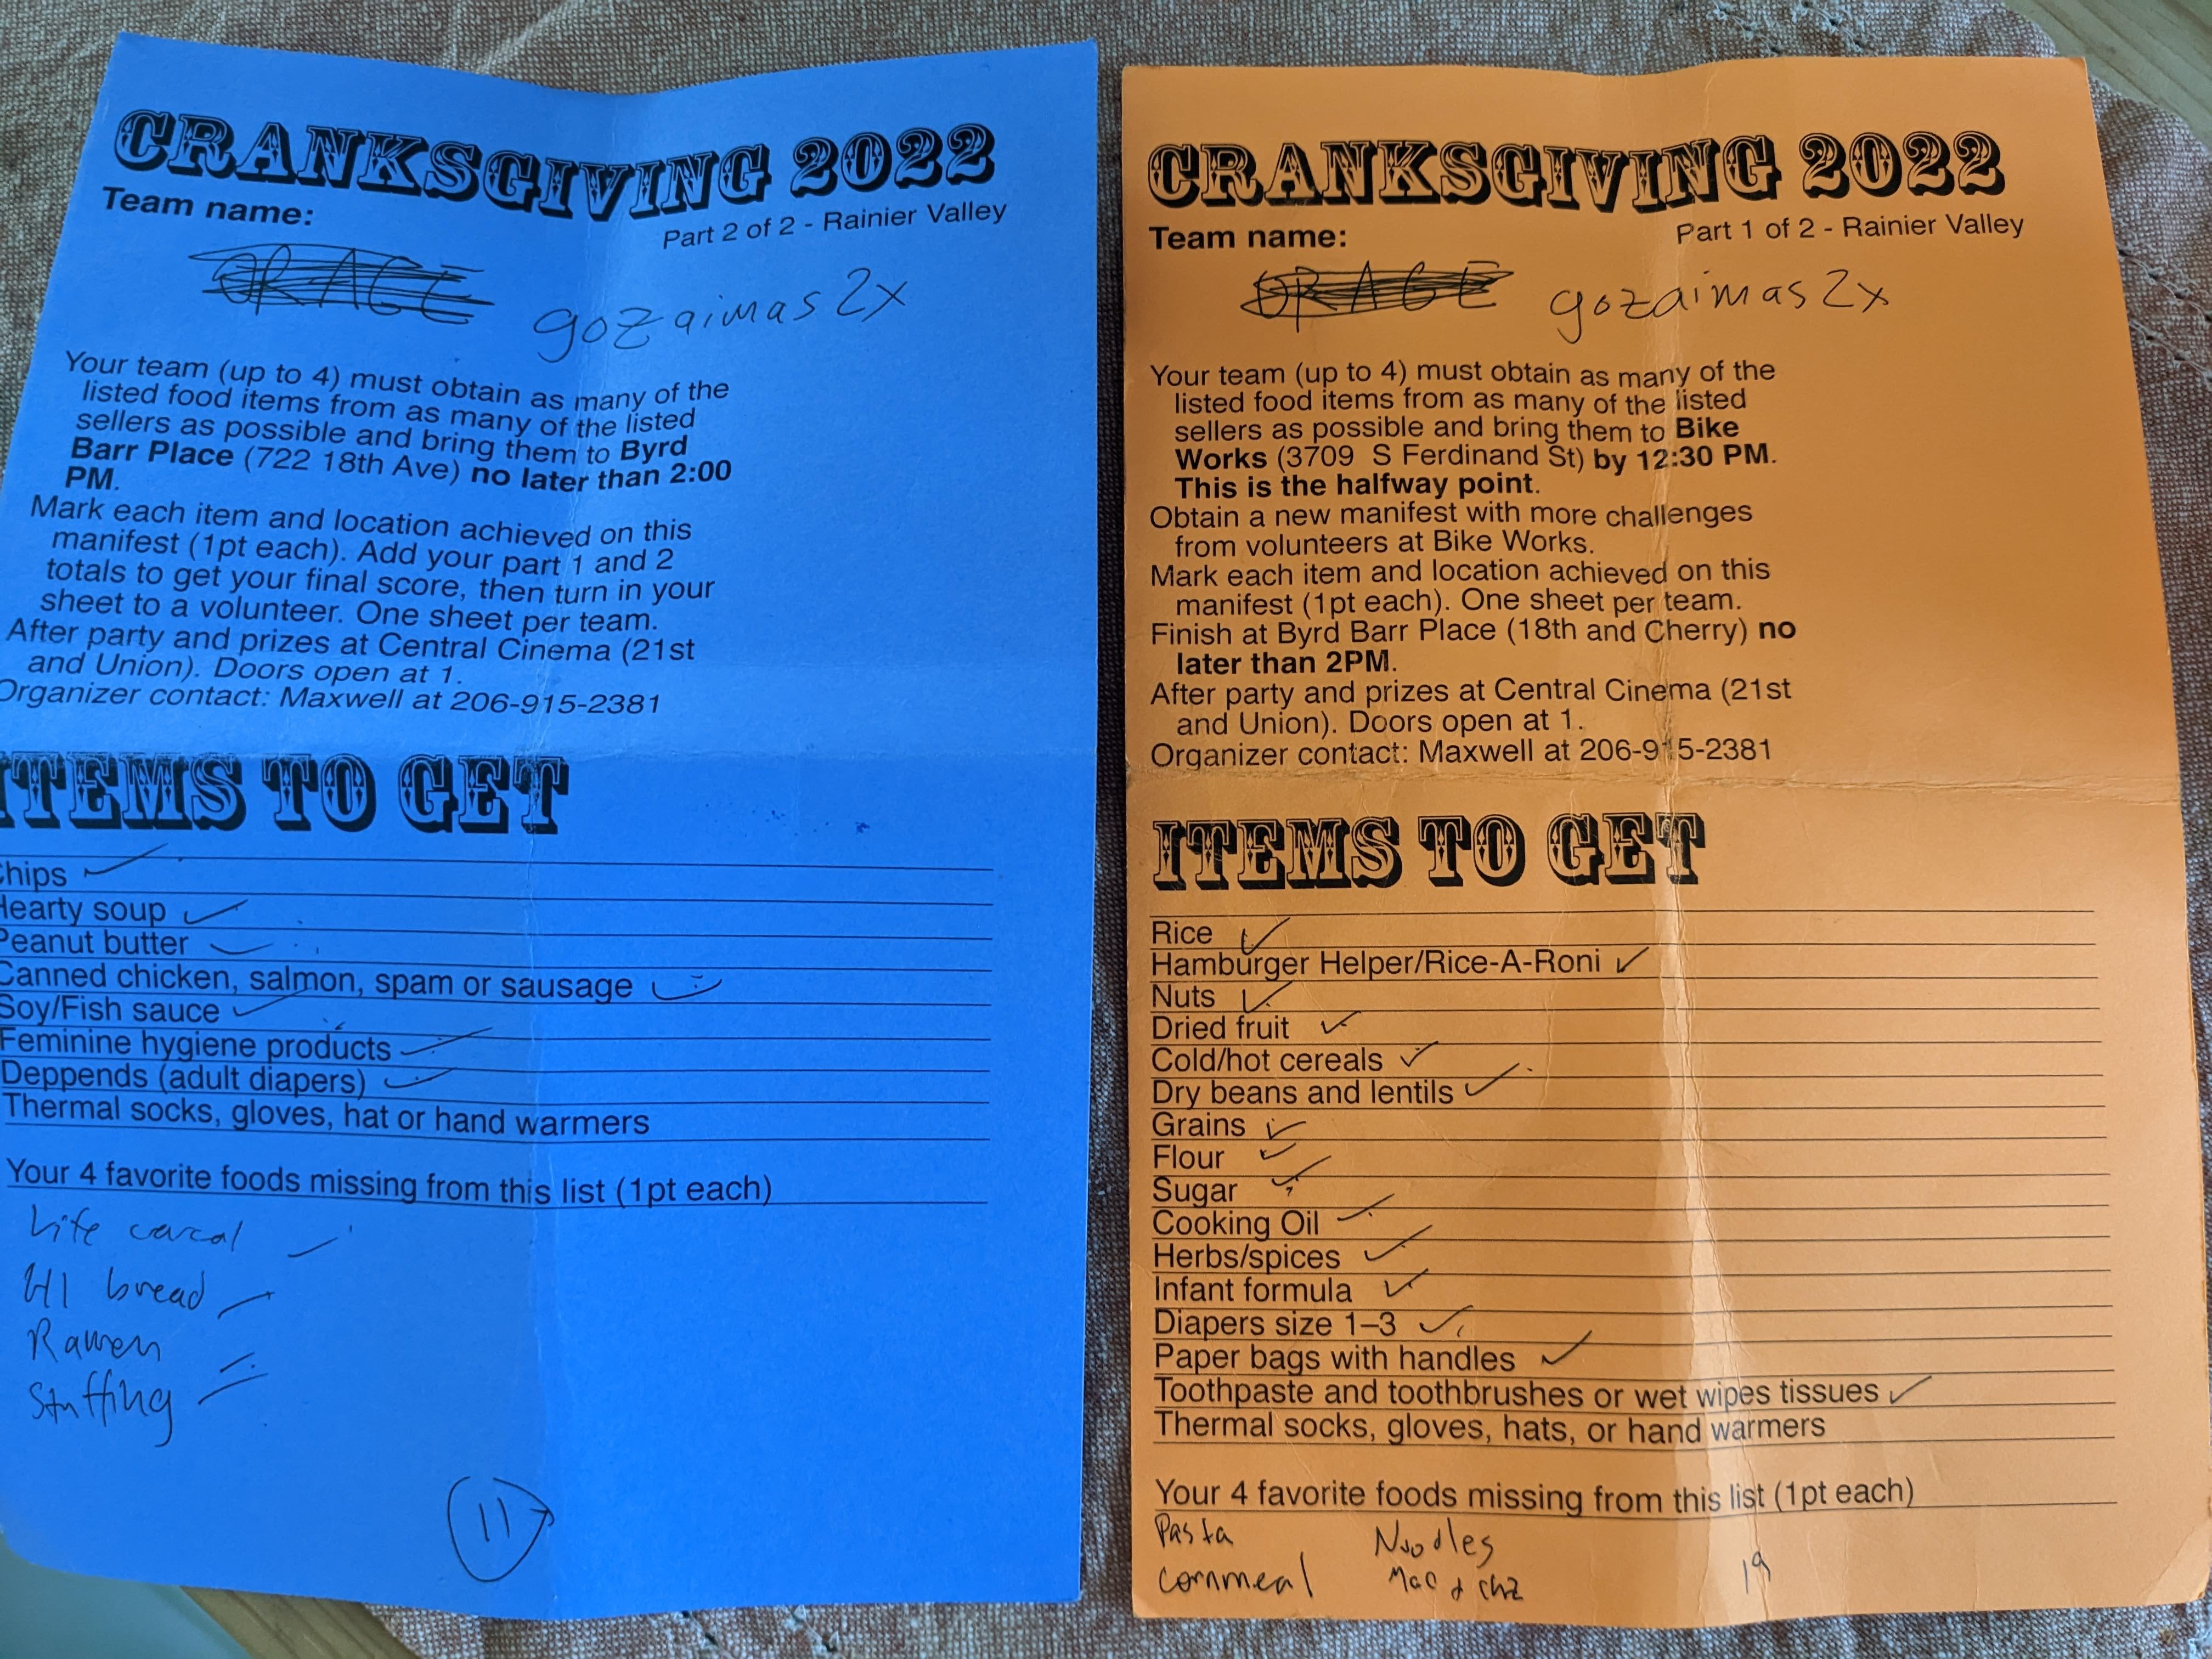 CRANKSGIVING 2022
Team name:
Part 2 of 2 - Rainier Valley
ORAGE gozaimas 2x
Your team (up to 4) must obtain as many of the
listed food items from as many of the listed
sellers as possible and bring them to Byrd
Barr Place (722 18th Ave) no later than 2:00
PM.
Mark each item and location achieved on this
manifest (1pt each). Add your part 1 and 2
totals to get your final score, then turn in your
sheet to a volunteer. One sheet per team.
After party and prizes at Central Cinema (21st
and Union). Doors open at 1.
Organizer contact: Maxwell at 206-915-2381
ITEMS TO GET
hips
Hearty soup
Peanut butter
Canned chicken, salmon, spam or sausage
Soy/Fish sauce
Feminine hygiene products
Deppends (adult diapers)
Thermal socks, gloves, hat or hand warmers
Your 4 favorite foods missing from this list (1pt each)
Life
HI bread
Ramen
Stuffing
11
CRANKSGIVING 2022
Team name:
Part 1 of 2 - Rainier Valley
ORAGE gozaimas 2x
Your team (up to 4) must obtain as many of the
listed food items from as many of the listed
sellers as possible and bring them to Bike
Works (3709 S Ferdinand St) by 12:30 PM.
This is the halfway point.
Obtain a new manifest with more challenges
from volunteers at Bike Works.
Mark each item and location achieved on this
manifest (1pt each). One sheet per team.
Finish at Byrd Barr Place (18th and Cherry) no
later than 2PM.
After party and prizes at Central Cinema (21st
and Union). Doors open at 1.
Organizer contact: Maxwell at 206-915-2381
ITEMS TO GET
Rice
Hamburger Helper/Rice-A-Roni
Nuts
Dried fruit
Cold/hot cereals
Dry beans and lentils
Grains
Flour
Sugar
Cooking Oil
Herbs/spices
Infant formula
Diapers size 1–3
Paper bags with handles
Toothpaste and toothbrushes or wet wipes tissues
Thermal socks, gloves, hats, or hand warmers
Your 4 favorite foods missing from this list (1pt each)
Pasta Noodles
cornmeal Mac & chz
19